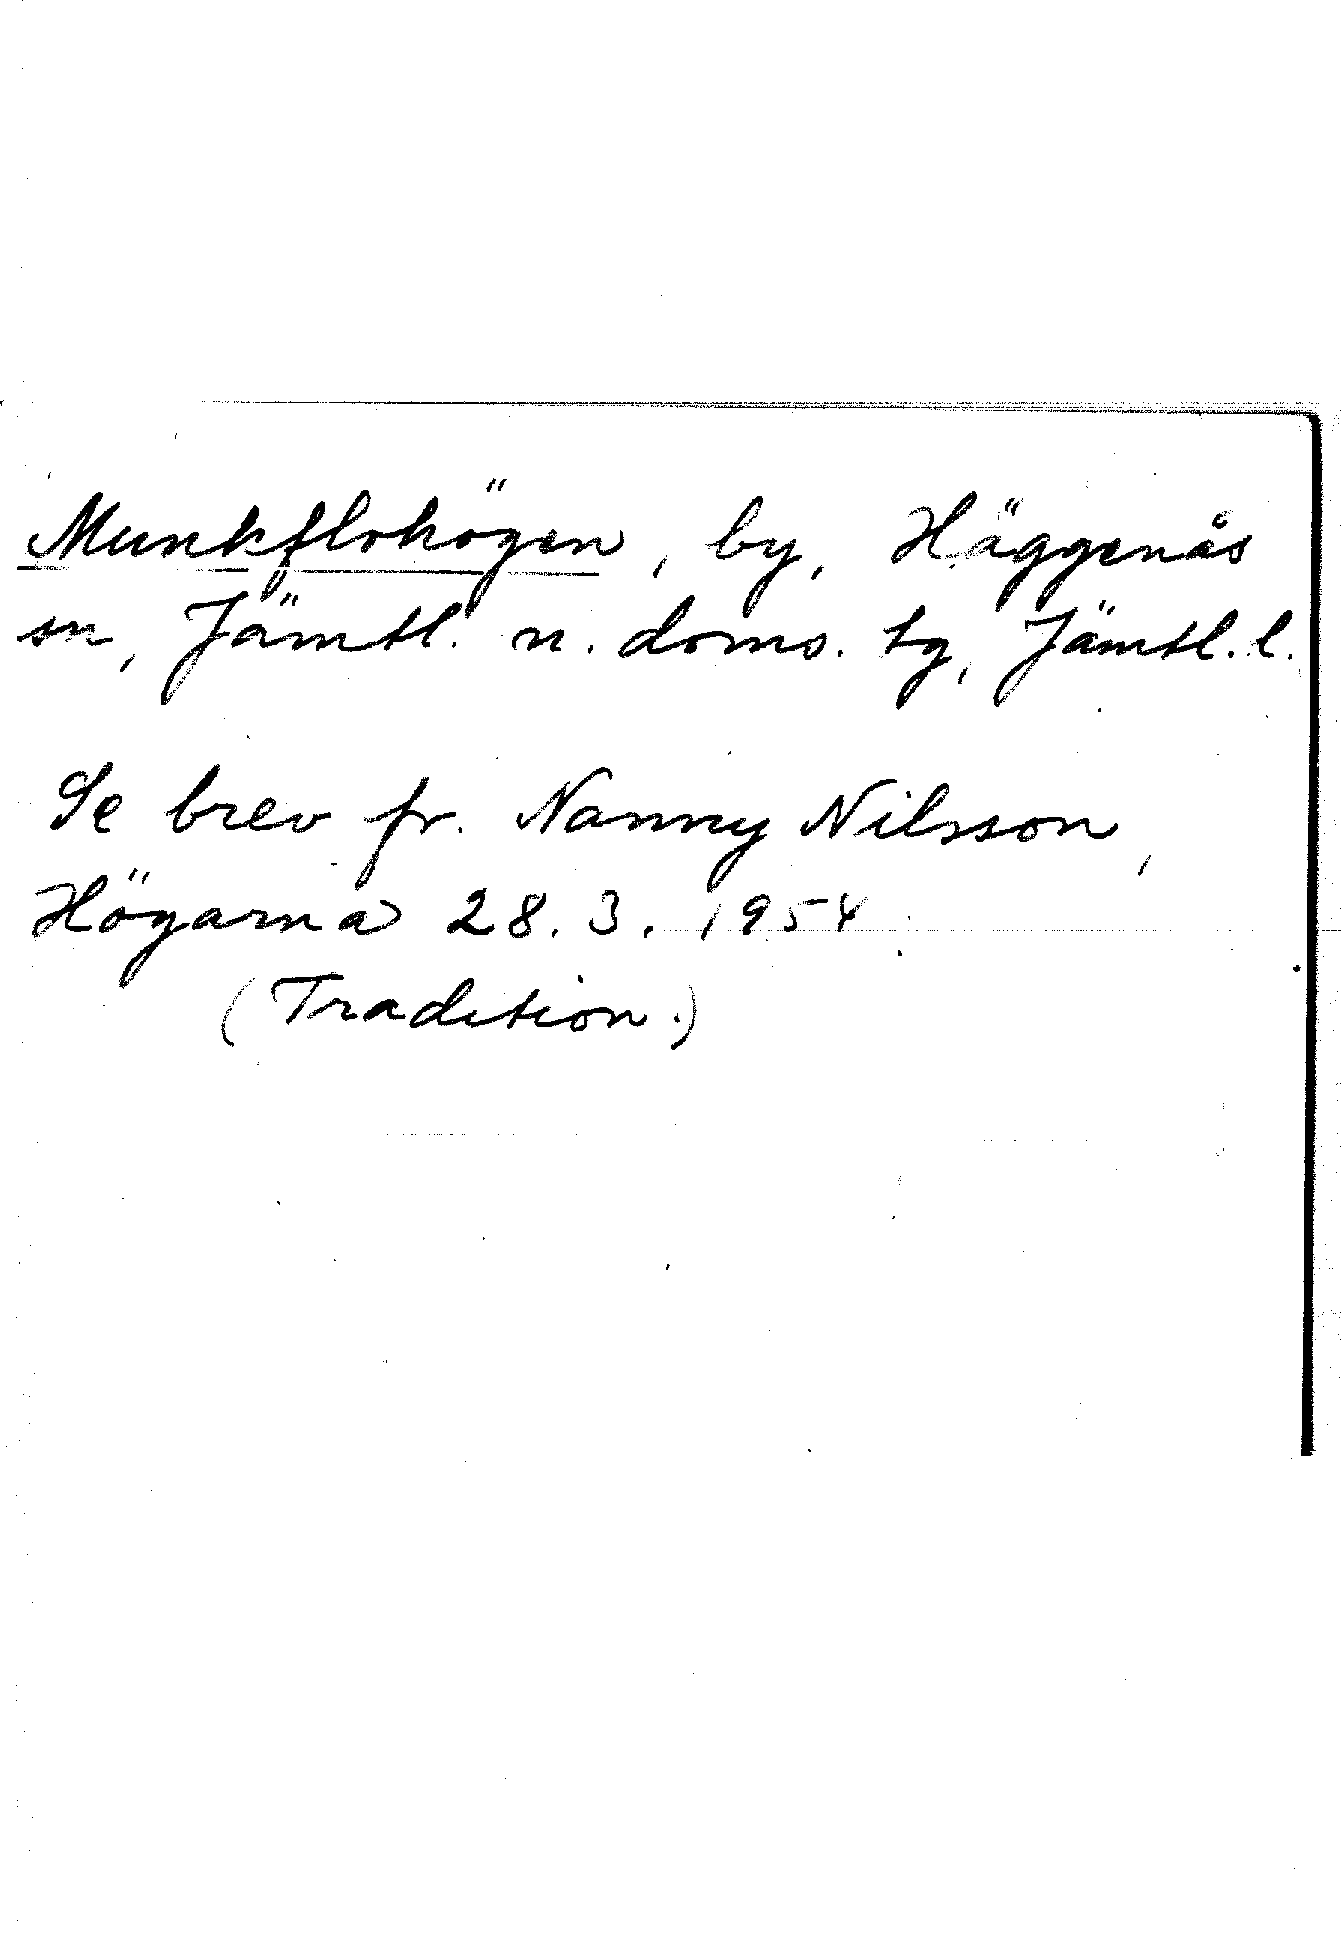 Munkflohögen, by, Häggenås
sn, Jämtl. n. doms. tg, Jämtl. l.
Se brev fr. Nanny Nilsson,
Högarna 28. 3. 1954
(Tradition.)